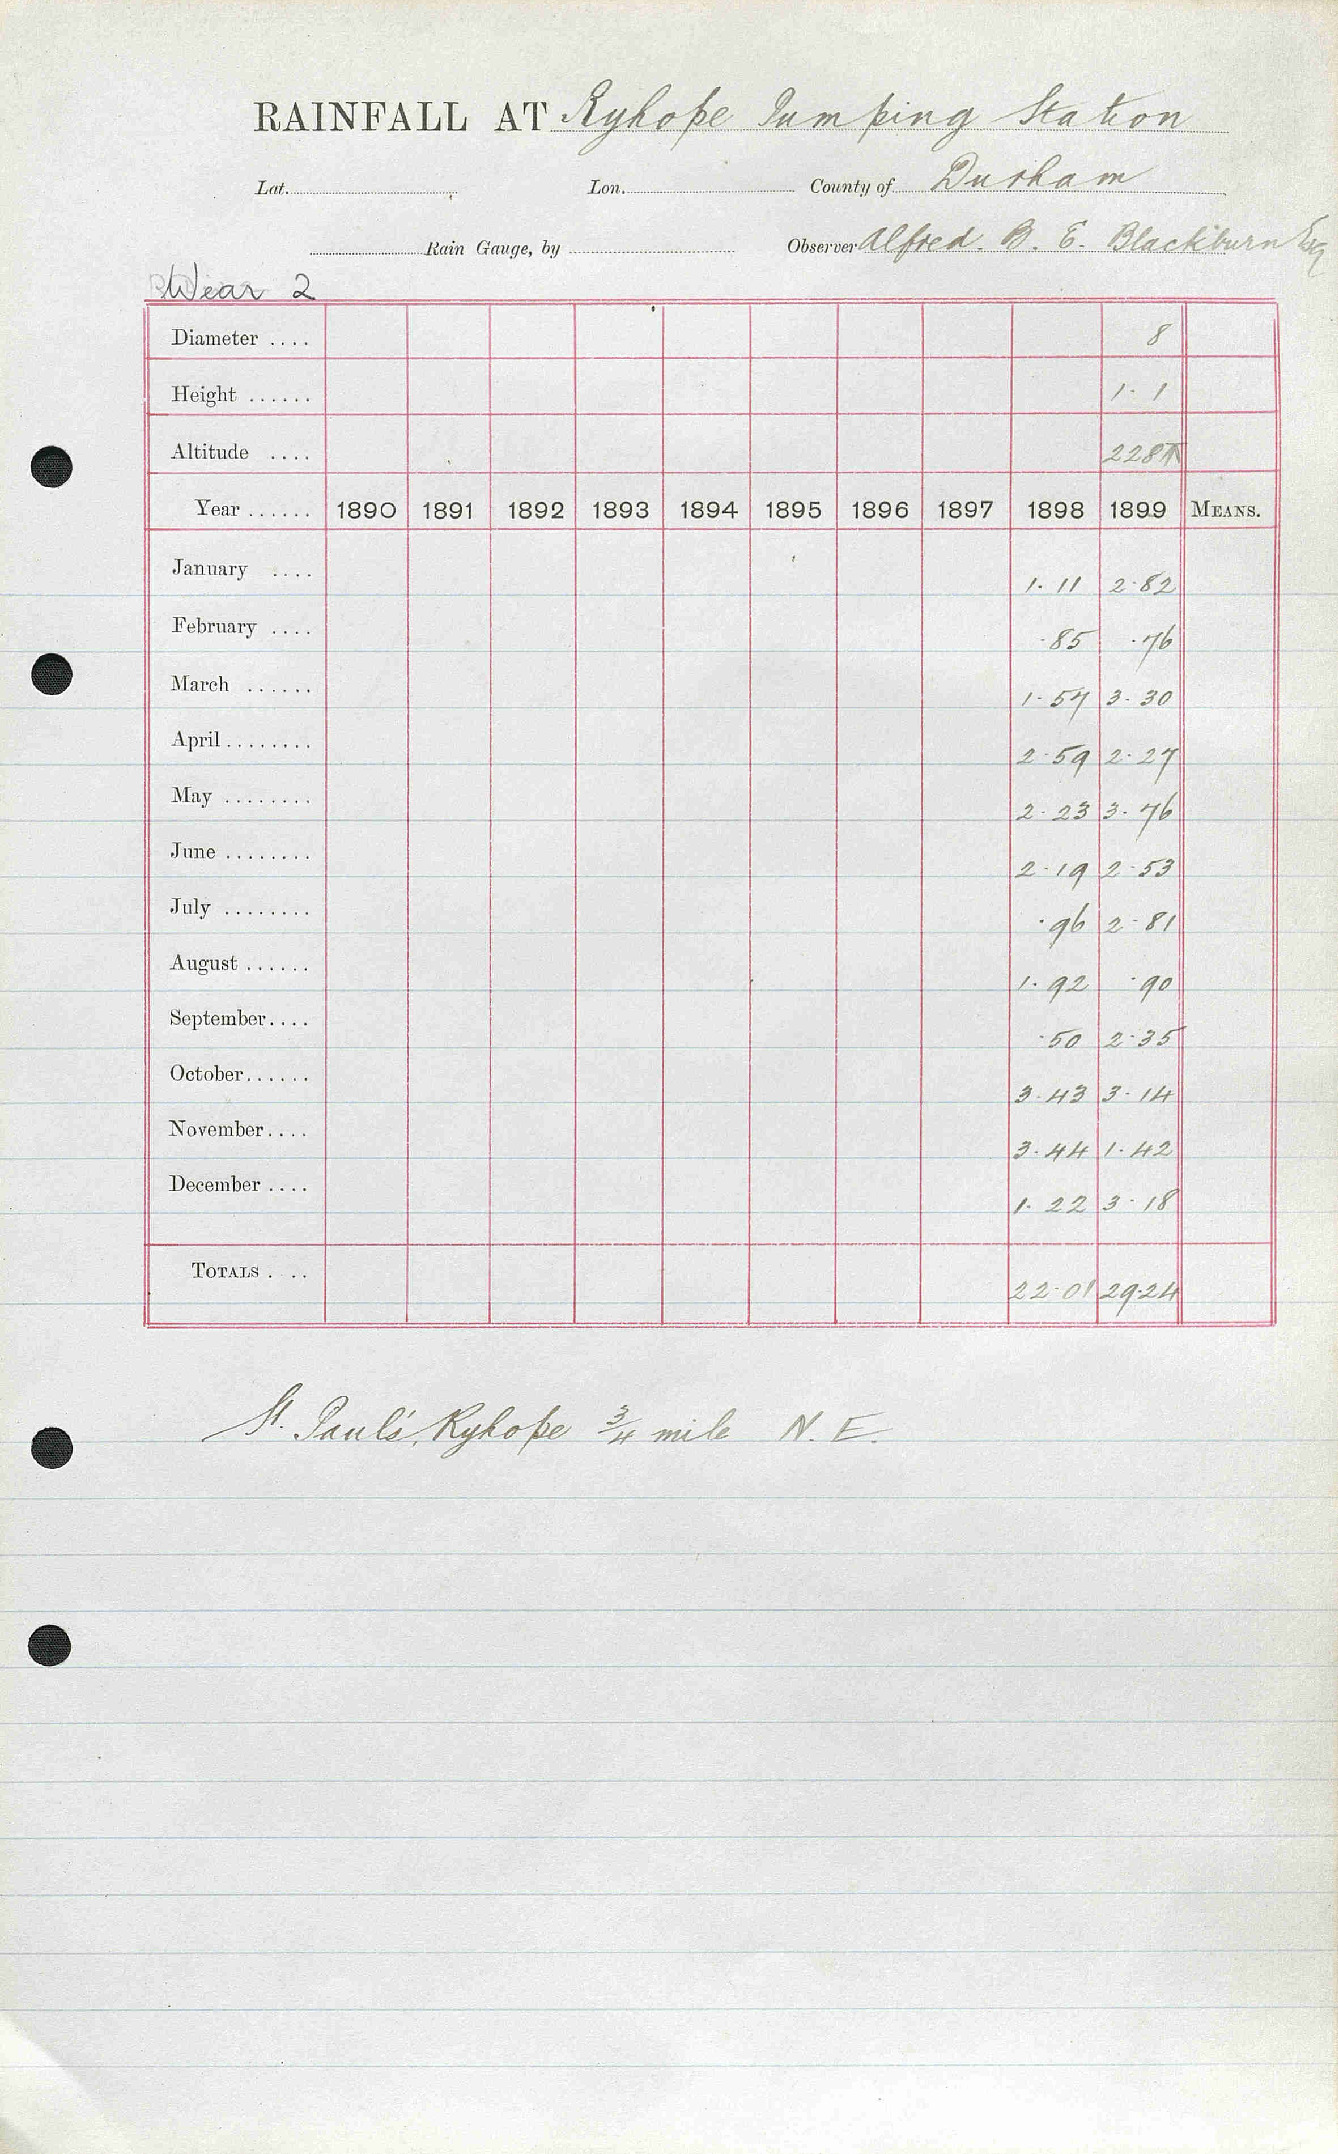 RAINFALL AT Ryhope Pumping Station
Lat. Lon. County of Durham
Rain Gauge, by Observer Alfred. B. E. Blackburn Esq
Wear 2
Diameter .... 8
Height ...... 1·1
Altitude .... 228
Year ...... 1890 1891 1892 1893 1894 1895 1896 1897 1898 1899 MEANS.
January .... 1·11 2·82
February .... ·85 ·76
March ...... 1·57 3·30
April ........ 2·59 2·27
May ........ 2·23 3·76
June ........ 2·19 2·53
July ........ ·96 2·81
August ...... 1·92 ·90
September.... ·50 2·35
October...... 3·43 3·14
November.... 3·44 1·42
December .... 1·22 3·18
TOTALS . .. 22·01 29·24
St. Paul's, Ryhope 3/4 mile N. E.